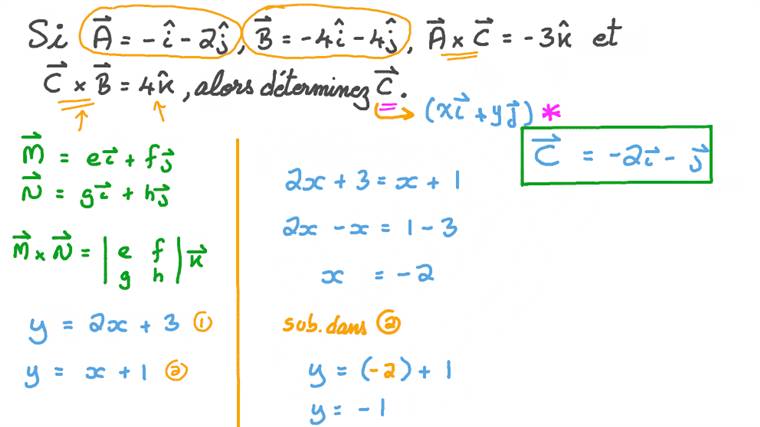 Si A⃗ = -î - 2ĵ, B⃗ = -4î - 4ĵ, A⃗ × C⃗ = -3k̂ et
C⃗ × B⃗ = 4k̂, alors déterminez C⃗.
(xi⃗ + yj⃗) *
M⃗ = ei⃗ + fj⃗
N⃗ = gi⃗ + hj⃗
M⃗ × N⃗ = | e f | k⃗
| g h |
y = 2x + 3 ①
y = x + 1 ②
2x + 3 = x + 1
2x - x = 1 - 3
x = -2
sub. dans ②
y = (-2) + 1
y = -1
C⃗ = -2i⃗ - j⃗